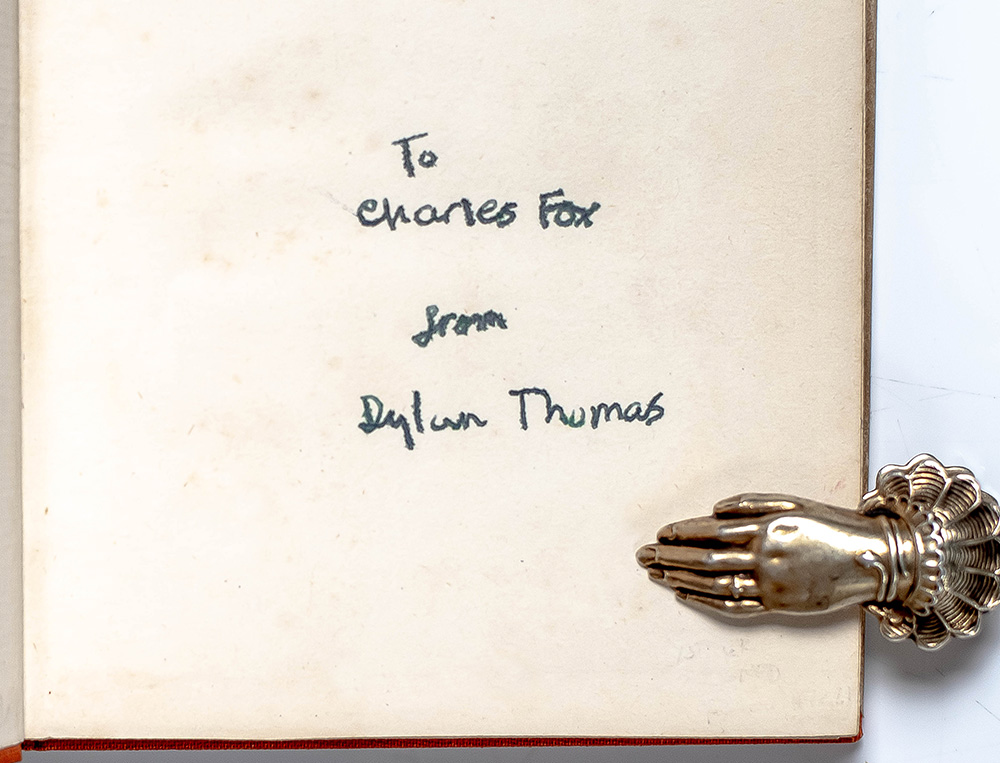 To
Charles Fox
from
Dylan Thomas